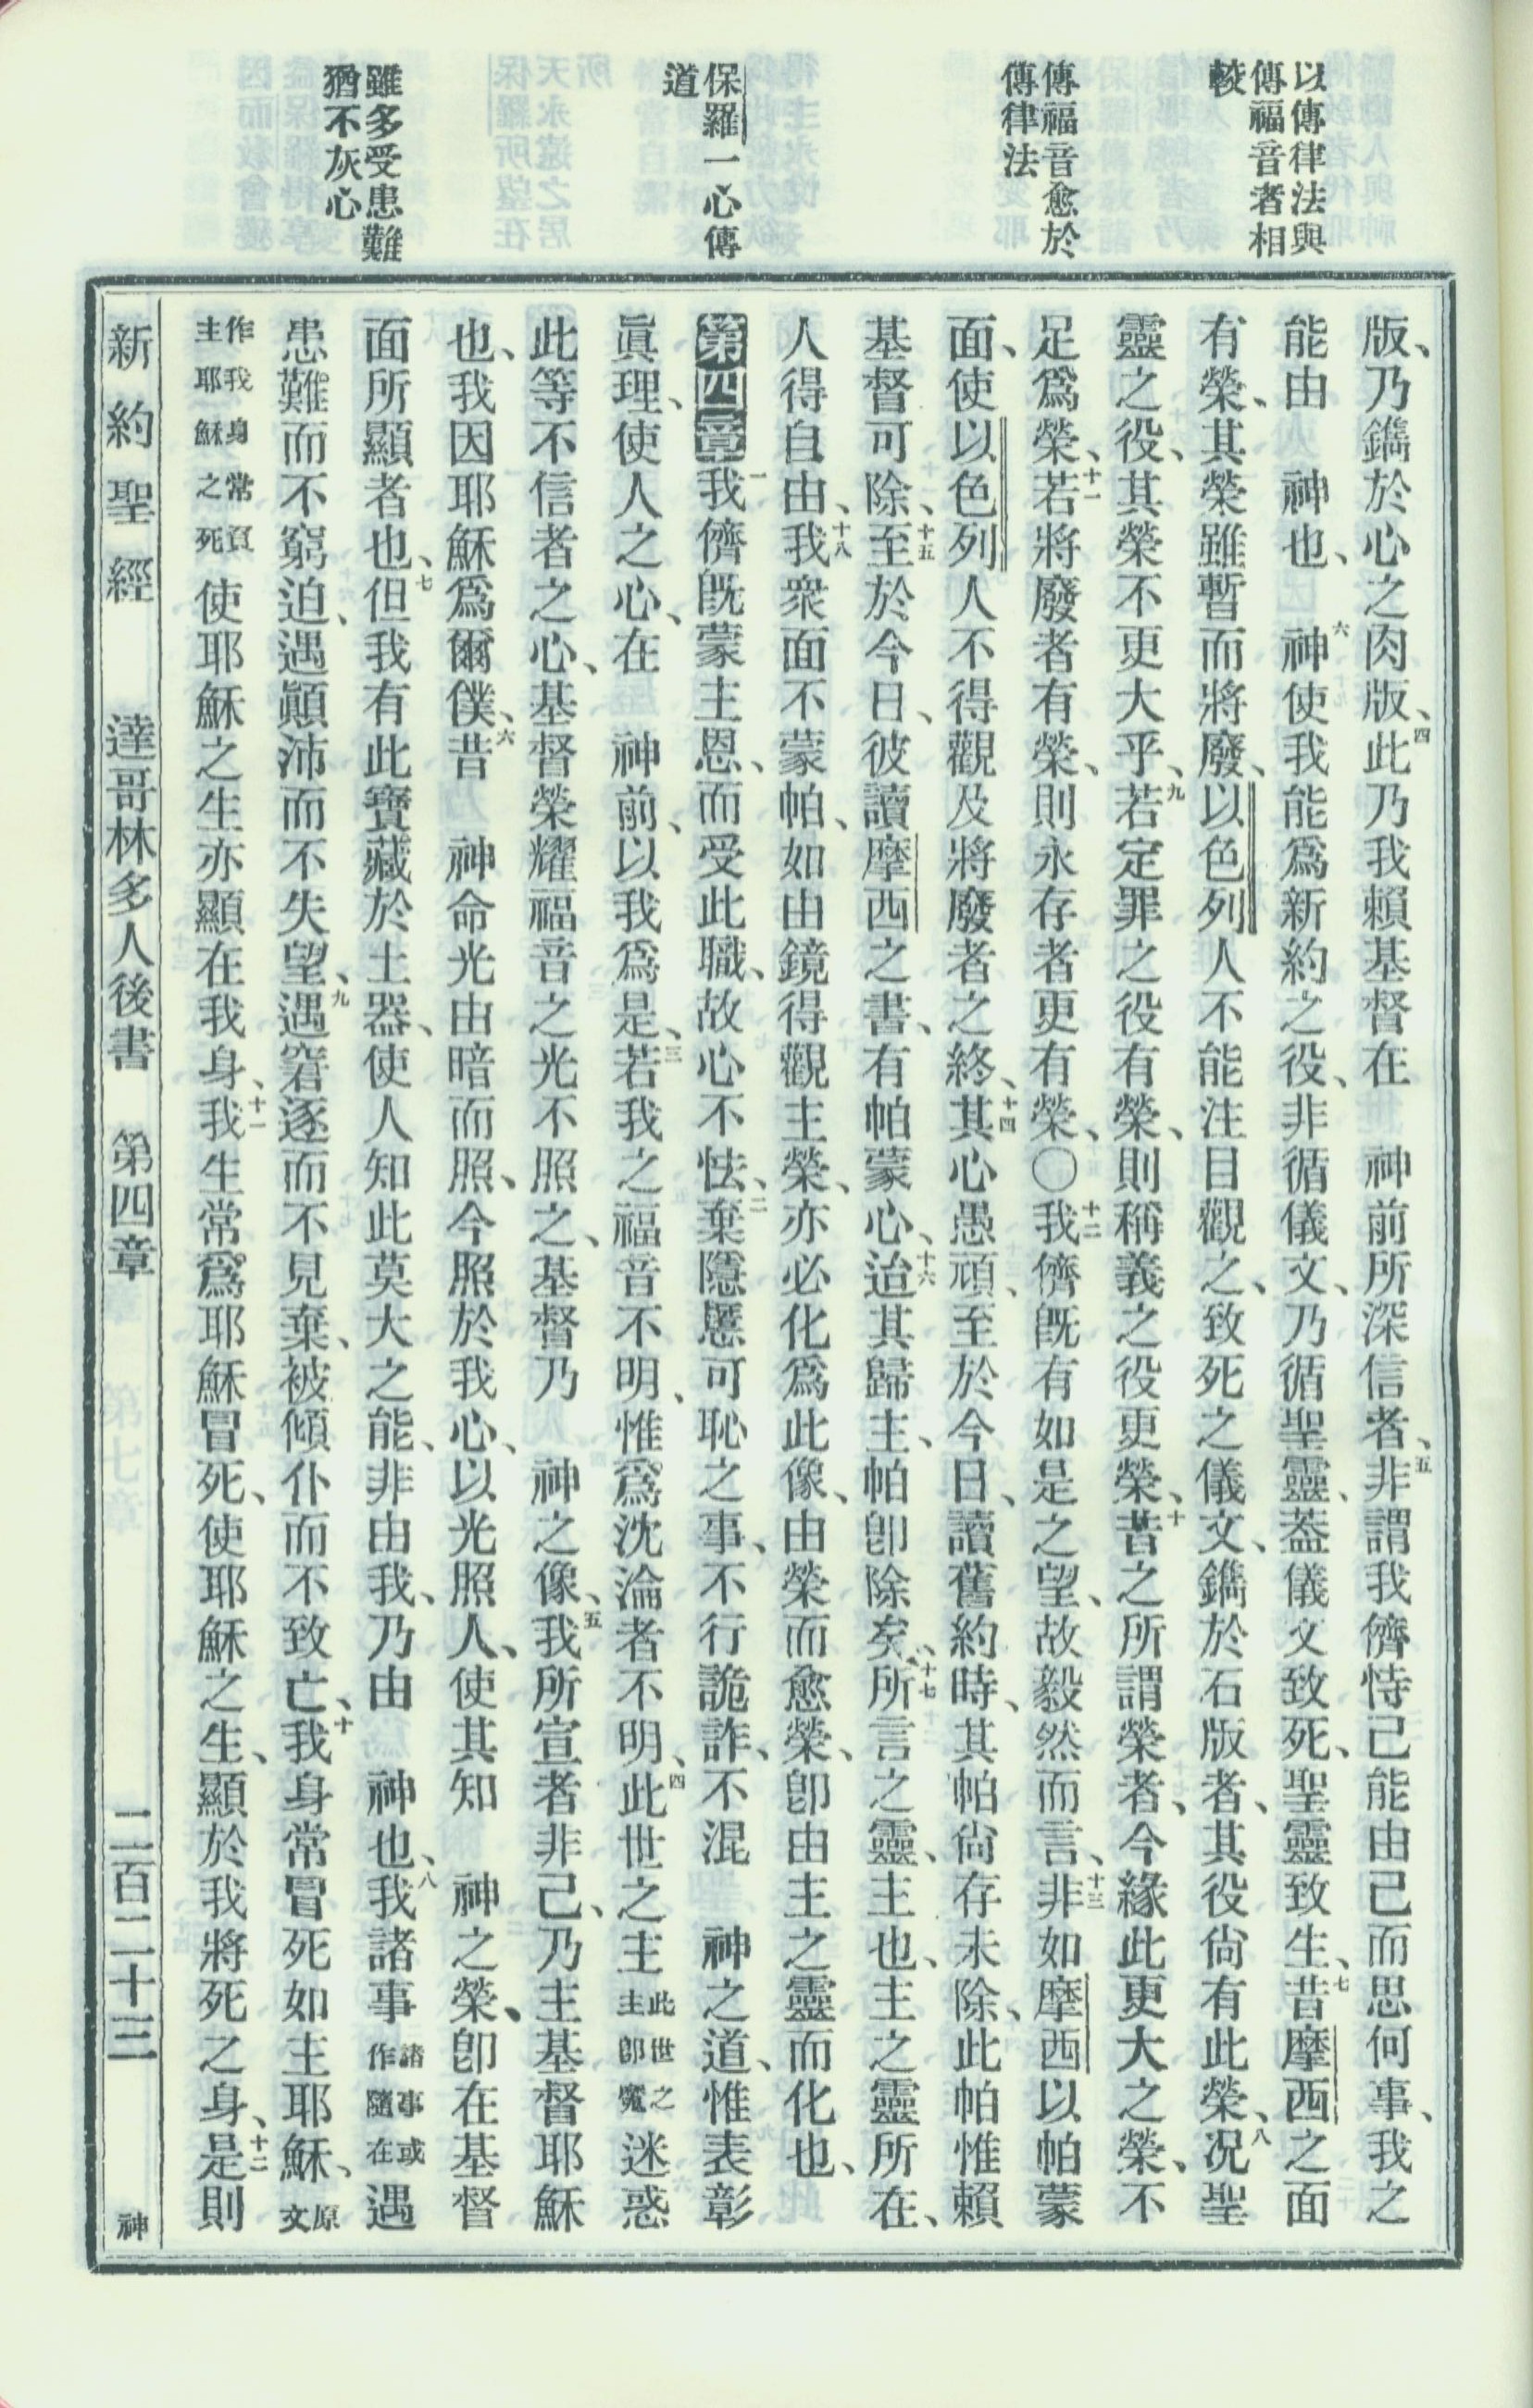 以傳律法與
傳福音者相
較
傳福音愈於
傳律法
保羅一心傳
道
雖多受患難
猶不灰心
版、乃鐫於心之肉版、四此乃我賴基督在　神前所深信者、五非謂我儕恃己能由己而思何事、我之
能由　神也、六神使我能爲新約之役、非循儀文、乃循聖靈、葢儀文致死、聖靈致生、七昔摩西之面
有榮、其榮雖暫而將廢、以色列人不能注目觀之、致死之儀文、鐫於石版者、其役尙有此榮、八况聖
靈之役、其榮不更大乎、九若定罪之役有榮、則稱義之役更榮、十昔之所謂榮者、今緣此更大之榮、不
足爲榮、十一若將廢者有榮、則永存者更有榮、〇十二我儕旣有如是之望、故毅然而言、十三非如摩西以帕蒙
面、使以色列人不得觀及將廢者之終、十四其心愚頑、至於今日、讀舊約時、其帕尙存未除、此帕惟賴
基督可除、十五至於今日、彼讀摩西之書、有帕蒙心、十六迨其歸主、帕卽除矣、十七所言之靈、主也、主之靈所在、
人得自由、十八我衆面不蒙帕、如由鏡得觀主榮、亦必化爲此像、由榮而愈榮、卽由主之靈而化也、
第四章一我儕旣蒙主恩、而受此職、故心不怯、二棄隱慝可恥之事、不行詭詐、不混　神之道、惟表彰
眞理、使人之心、在　神前、以我爲是、三若我之福音不明、惟爲沈淪者不明、四此世之主此世之主卽魔迷惑
此等不信者之心、基督榮耀福音之光不照之、基督乃　神之像、五我所宣者非己、乃主基督耶穌
也、我因耶穌爲爾僕、六昔　神命光由暗而照、今照於我心、以光照人、使其知　神之榮、卽在基督
面所顯者也、七但我有此寶藏於土器、使人知此莫大之能、非由我、乃由　神也、八我諸事諸事或作隨在遇
患難而不窮迫、遇顚沛而不失望、九遇窘逐而不見棄、被傾仆而不致亡、十我身常冒死如主耶穌、原文
作我身常負主耶穌之死使耶穌之生亦顯在我身、十一我生常爲耶穌冒死、使耶穌之生、顯於我將死之身、十二是則
新約聖經　達哥林多人後書　第四章　二百二十三　神